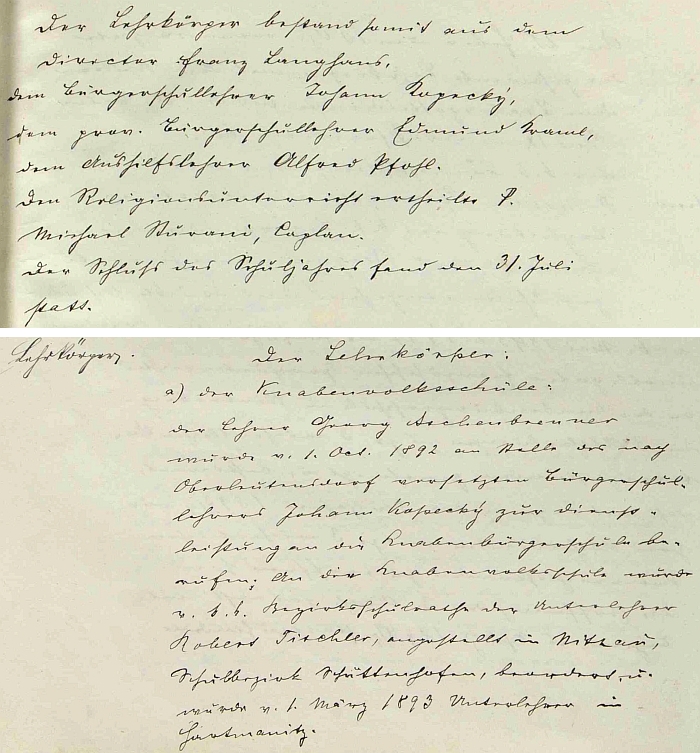 Der Lehrkörper bestand somit aus dem
Director Franz Langhans,
dem Bürgerschullehrer Johann Kopecký,
dem prov. Bürgerschullehrer Edmund Kraml,
dem Aushilfslehrer Alfred Pfohl.
Den Religionsunterricht ertheilte P.
Michael Sturani, Caplan.
Der Schluß des Schuljahres fand den 31. Juli
statt.
Lehrkörper.
Der Lehrkörper:
a) der Knabenvolksschule:
der Lehrer Georg Aschenbrenner
wurde v. 1. Oct. 1892 an Stelle des nach
Oberleutensdorf versetzten Bürgerschul-
lehrers Johann Kopecký zur Dienst-
leistung an die Knabenbürgerschule be-
rufen; An die Knabenvolksschule wurde
v. k. k. Bezirksschulrathe der Unterlehrer
Robert Tischler, angestellt in Nittau,
Schulbezirk Schüttenhofen, beordert u.
wurde v. 1. März 1893 Unterlehrer in
Hartmanitz.